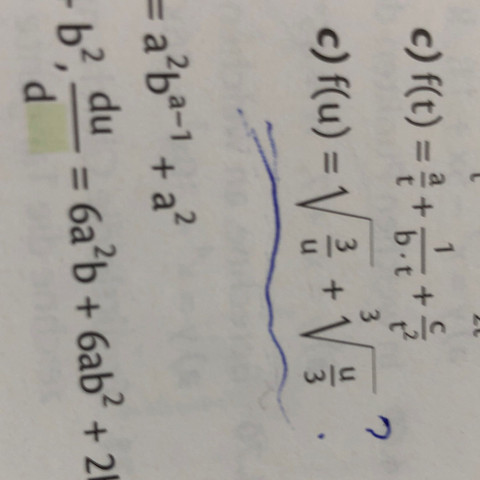 c) f(t) = a/t + 1/(b·t) + c/t²
c) f(u) = √(3/u) + ³√(u/3) ?
= a²b^(a−1) + a²
b², du/d = 6a²b + 6ab² +